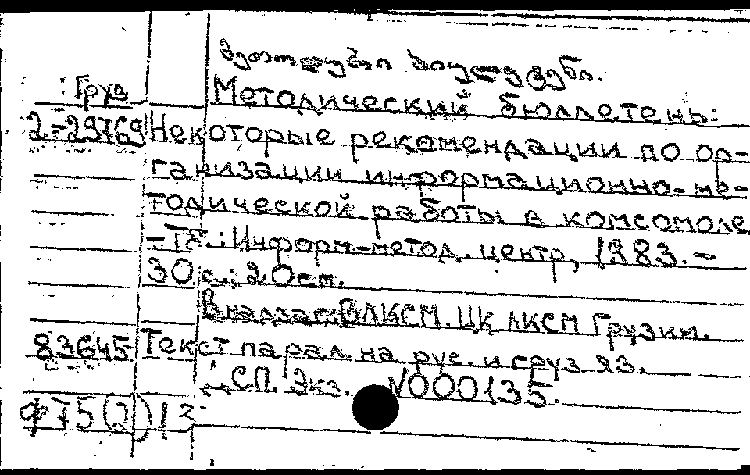 მეთოდური ბიულეტენი.
Груз Методический бюллетень:
2-29769 Некоторые рекомендации по ор-
ганизации информационно-ме-
тодической работы в комсомоле
-Тб.: Информ-метод. центр, 1983.-
30 с.; 20 см.
В надзаг. ВЛКСМ. ЦК ЛКСМ Грузии.
83645 Текст парал. на рус. и груз яз.
СП. Экз. N000135.
Ф75(2)12